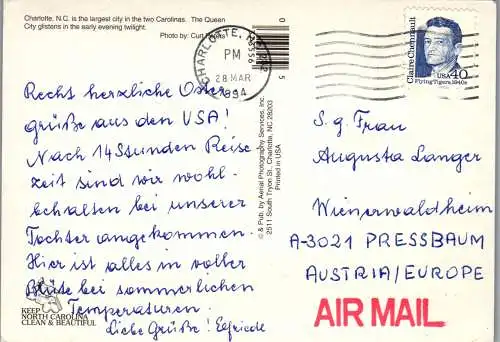 Charlotte, N.C. is the largest city in the two Carolinas. The Queen
City glistens in the early evening twilight.
Photo by: Curt
CHARLOTTE, NC
PM
28 MAR
Claire Chennault
USA 40
Flying Tigers, 1940s
Recht herzliche Oster
grüße aus den USA!
Nach 14 Stunden Reise
zeit sind wir wohl-
behalten bei unserer
Tochter angekommen.
Hier ist alles in voller
Blüte bei sommerlichen
Temperaturen.
Liebe Grüße! Elfriede
KEEP
NORTH CAROLINA
CLEAN & BEAUTIFUL
© & Pub. by Aerial Photography Services, Inc.
2511 South Tryon St., Charlotte, NC 28203
Printed in USA
S.g. Frau
Augusta Langer
Wienerwaldheim
A-3021 PRESSBAUM
AUSTRIA/EUROPE
AIR MAIL